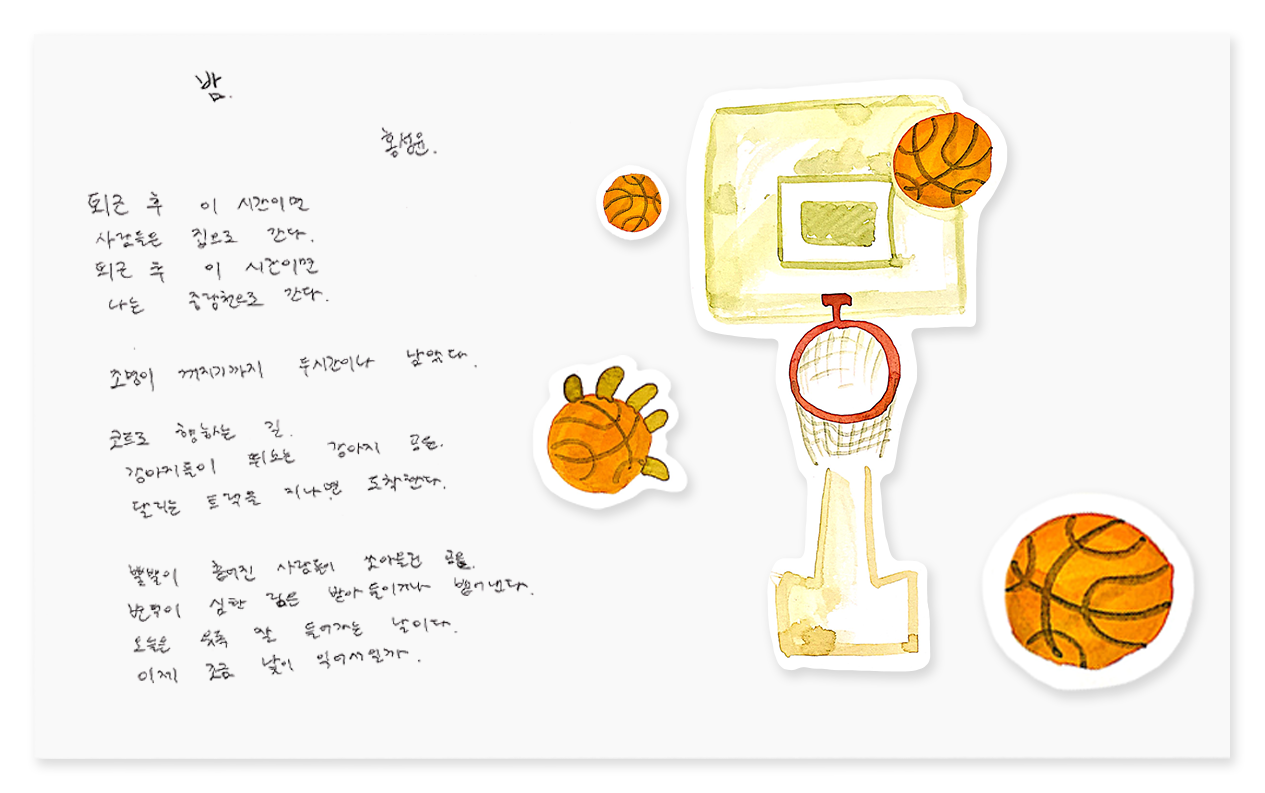 밤.
홍성윤.
퇴근 후 이 시간이면
사람들은 집으로 간다.
퇴근 후 이 시간이면
나는 중랑천으로 간다.
조명이 꺼지기까지 두시간이나 남았다.
코트로 향하는 길.
강아지들이 뛰노는 강아지 공원.
달리는 트랙을 지나면 도착한다.
뿔뿔이 흩어진 사람들이 쏘아올린 공을.
변덕이 심한 림은 받아 들이거나 뱉어낸다.
오늘은 유독 잘 들어가는 날이다.
이제 조금 낯이 익어서일까.